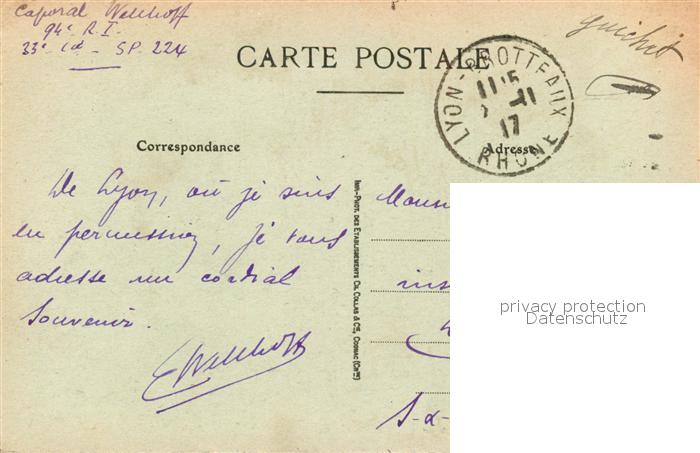 Caporal Welchoff
94e R.I.
33e Cie - SP. 224
guichit
CARTE POSTALE
LYON-BROTTEAUX
11 15
11
17
RHONE
Correspondance
Adresse
De Lyon, où je suis
en permission, je vous
adresse un cordial
souvenir.
EWelchoff
IMP.-PHOT. DES ETABLISSEMENTS CH. COLLAS & Cie, COGNAC (Chte)
Mons
ins
S-d-
privacy protection
Datenschutz